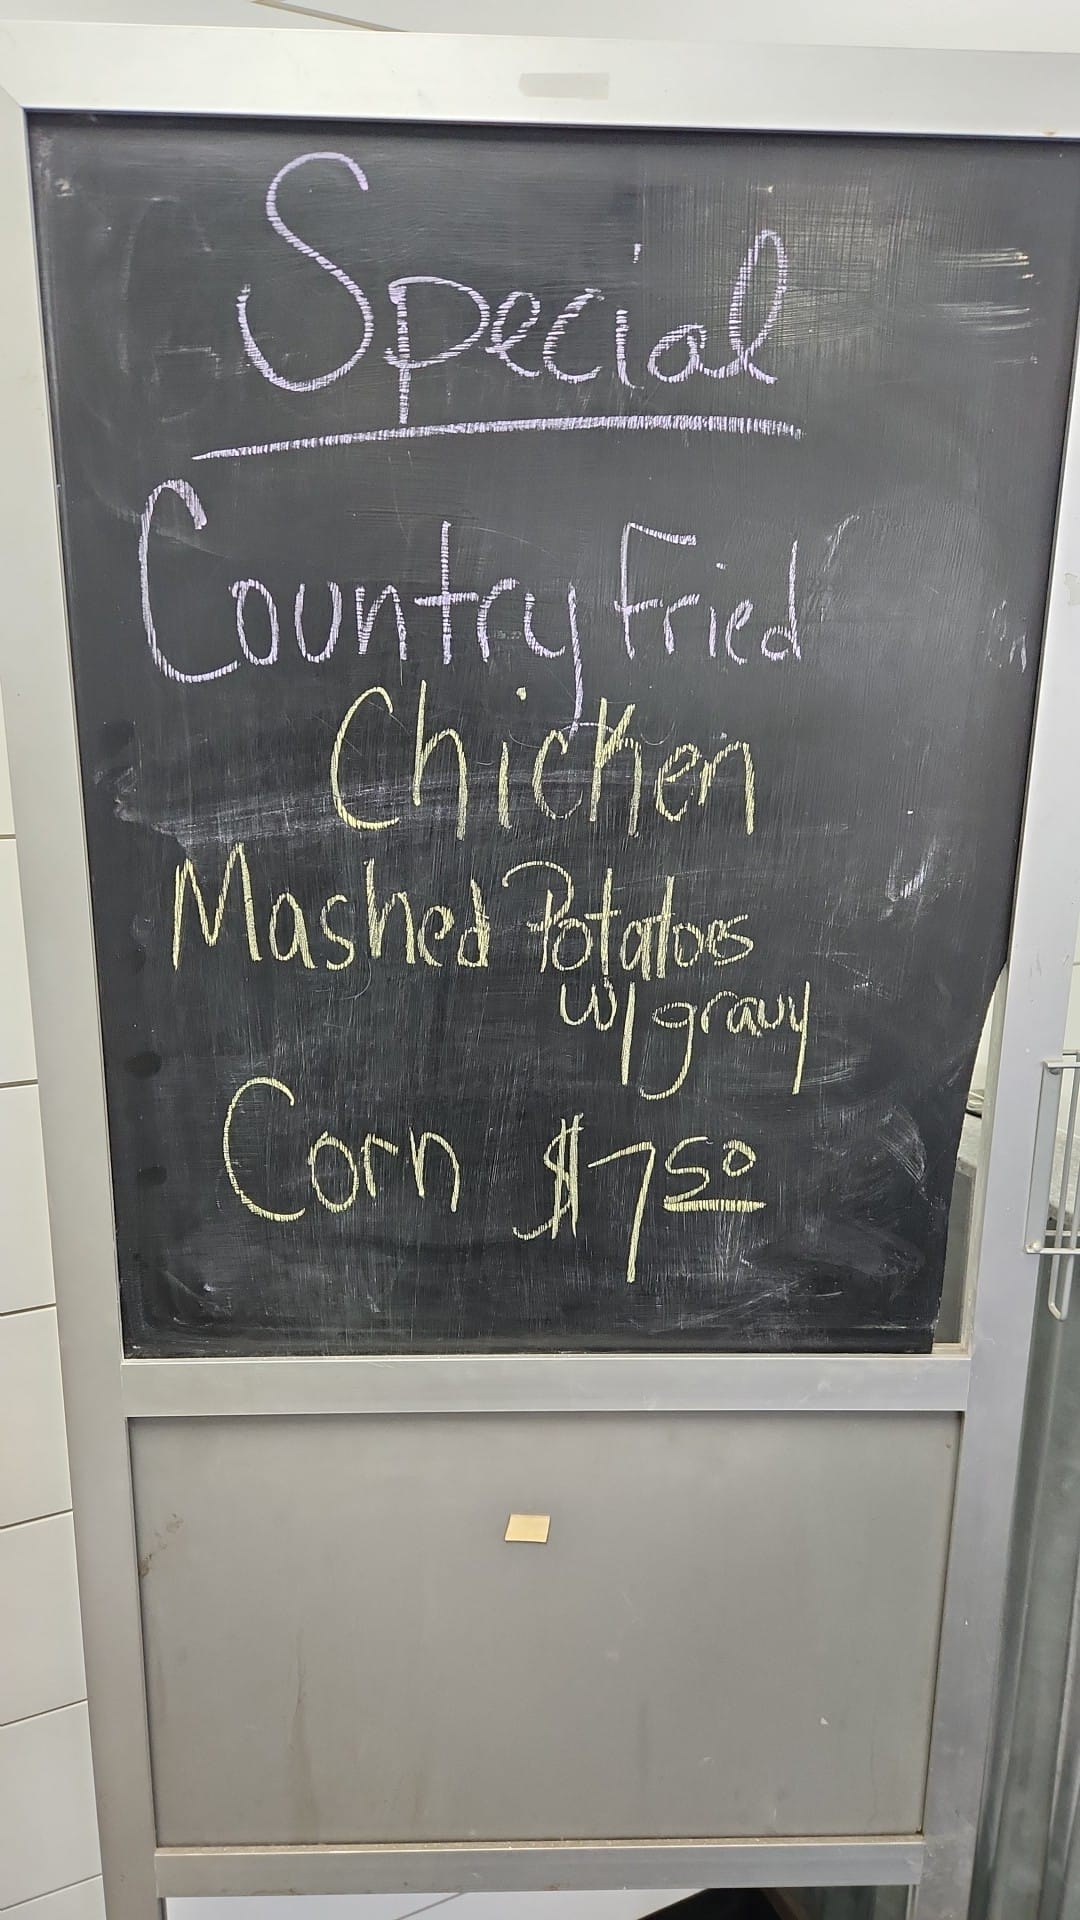 Special
Country Fried
Chicken
Mashed Potatoes
w/gravy
Corn $7 50